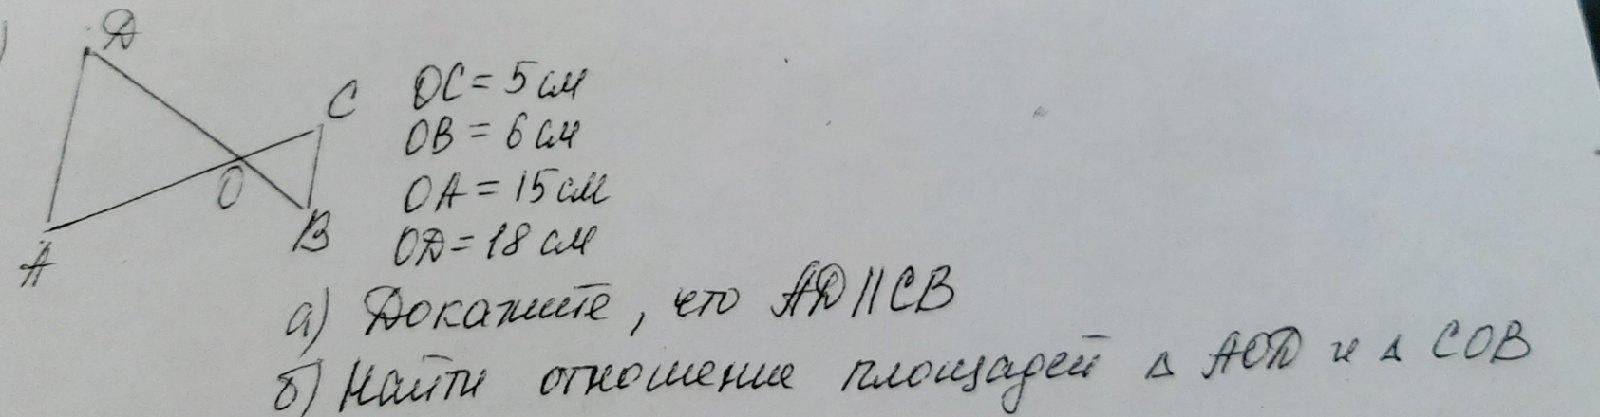 )
D
C
O
B
A
OC = 5 см
OB = 6 см
OA = 15 см
OD = 18 см
а) Докажите, что AD || CB
б) Найти отношение площадей Δ AOD и Δ COB